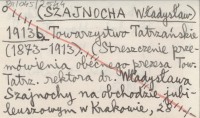 (SZAJNOCHA Władysław)
1913b. Towarzystwo Tatrzańskie
(1873-1913). (Streszczenie prze-
mówienia obecnego prezesa Tow.
Tatrz. rektora dr. Władysława
Szajnochy na obchodzie jubi-
leuszowym w Krakowie, 28